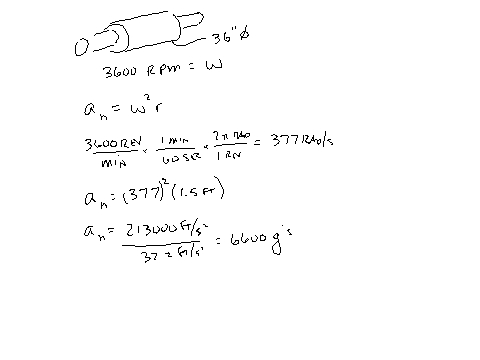 36" ø
3600 RPM = ω
aₙ = ω² r
3600 REV / MIN × 1 MIN / 60 SEC × 2π RAD / 1 REV = 377 RAD/s
aₙ = (377)² (1.5 FT)
aₙ = 213000 FT/s² / 32.2 FT/s² = 6600 g's